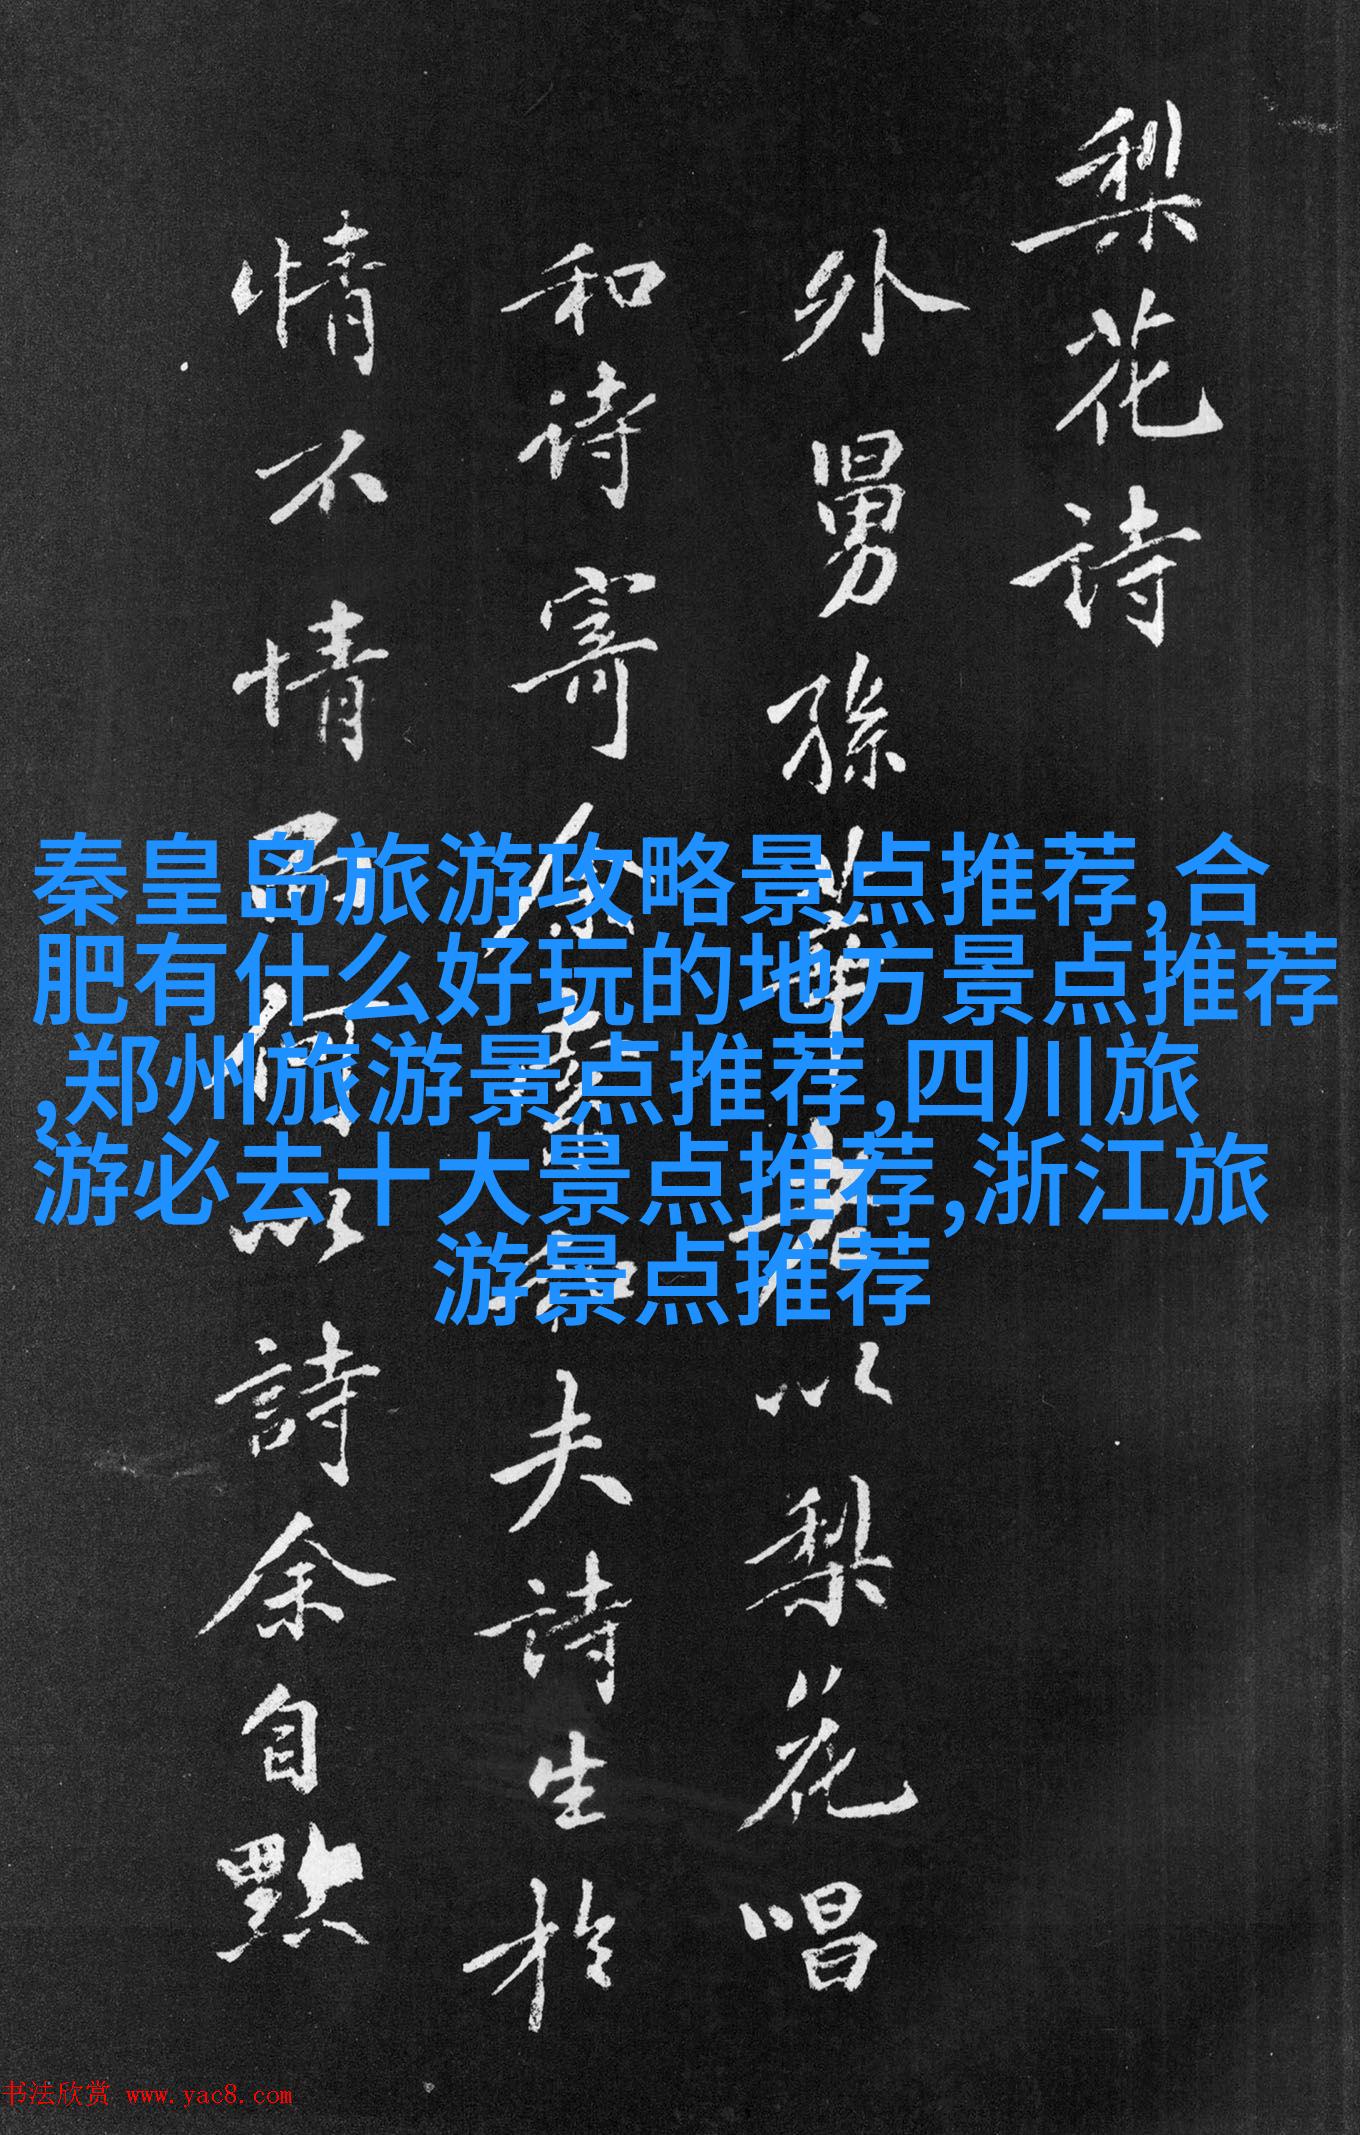 梨花诗
外舅孫莘老以梨花唱
和诗寄余余和夫詩生於
情不情而何以詩余自黙
秦皇岛旅游攻略景点推荐,合
肥有什么好玩的地方景点推荐
,郑州旅游景点推荐,四川旅
游必去十大景点推荐,浙江旅
游景点推荐
书法欣赏 www.yac8.com